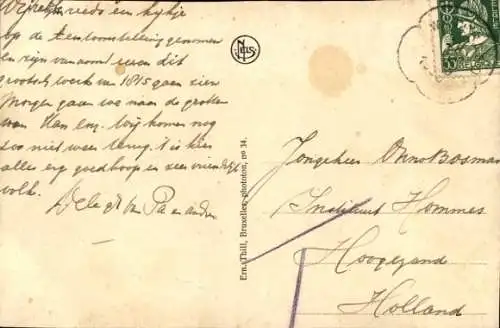 reeds een kijkje
op de tentoonstelling genomen
en zijn vanavond dit
grootsch werk van 1815 gaan zien
Morgen gaan we naar de grotten
van Han enz. Wij komen nog
zoo niet weer terug. 't is hier
alles erg goedkoop en zeer
volk.
Pa en
NELS
Ern. Thill, Bruxelles, phototon, no 34.
Jongeheer Onno Bosman
Instituut Hommes
Hoogezand
Holland